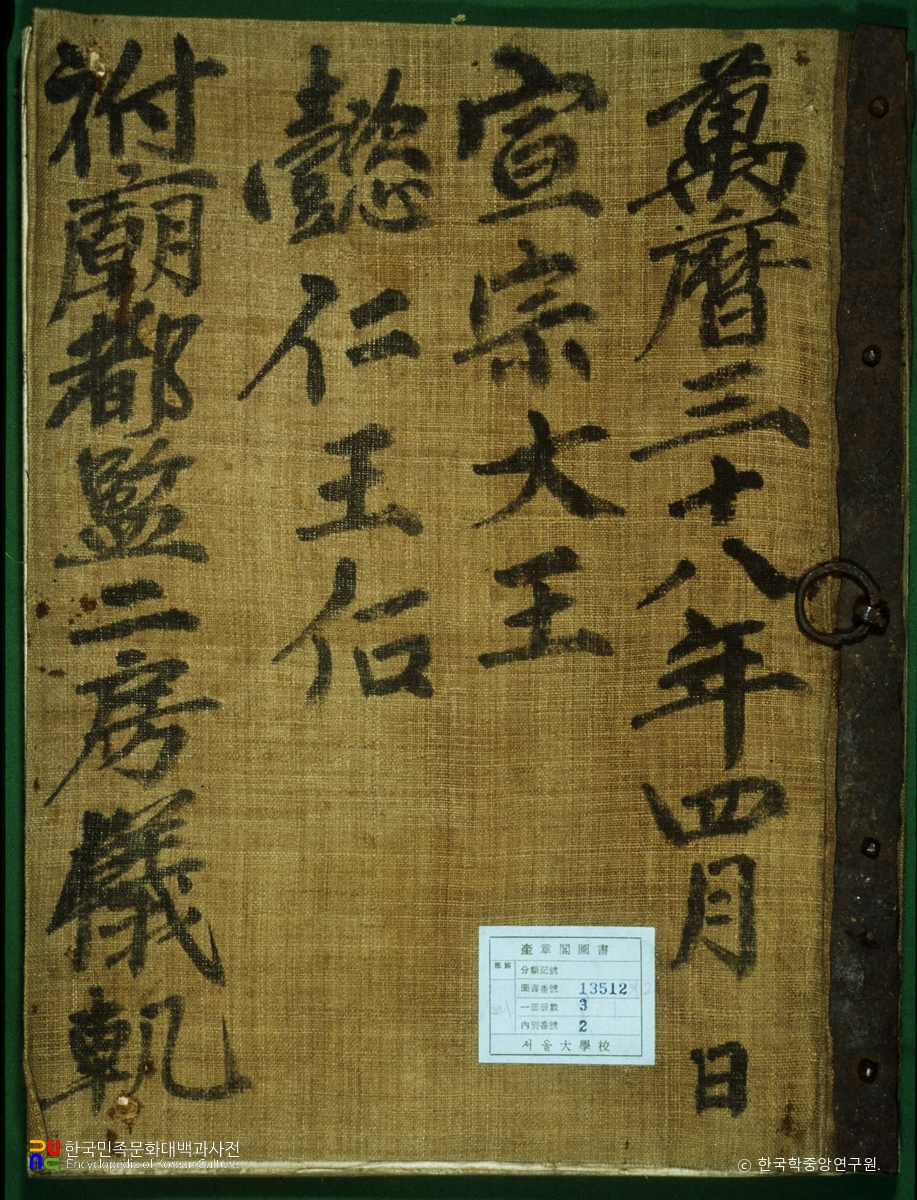 萬曆三十八年四月 日
宣宗大王
懿仁王后
祔廟都監二房儀軌
奎章閣圖書
分類記號
圖書番號 13512
一部冊數 3
內別番號 2
서울大學校
한국민족문화대백과사전
Encyclopedia of Korean Culture
© 한국학중앙연구원.